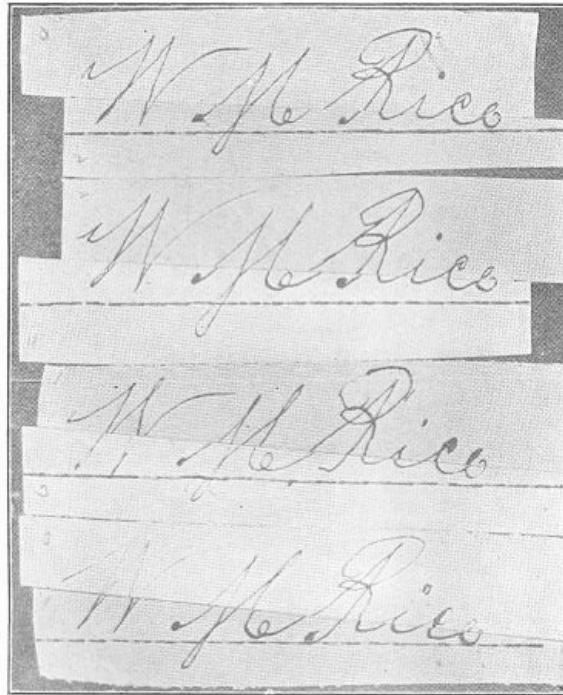 W M Rico
W M Rico
W M Rico
W M Rico